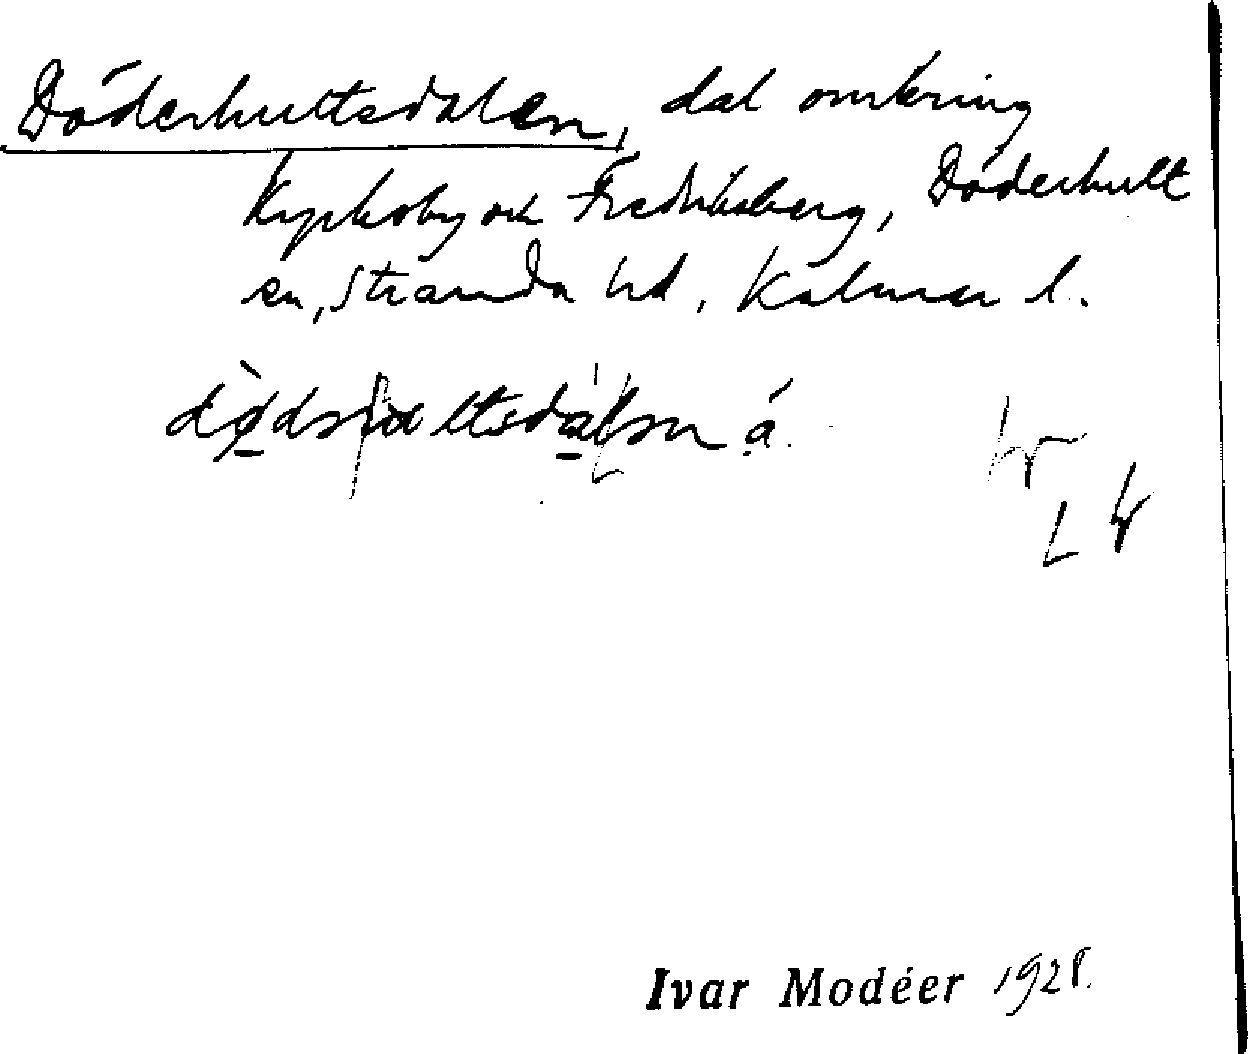 Döderhultsdalen, dal omkring
Kyrkoby och Fredriksberg, Döderhult
sn, Stranda hd, Kalmar l.
Ivar Modéer 1928.